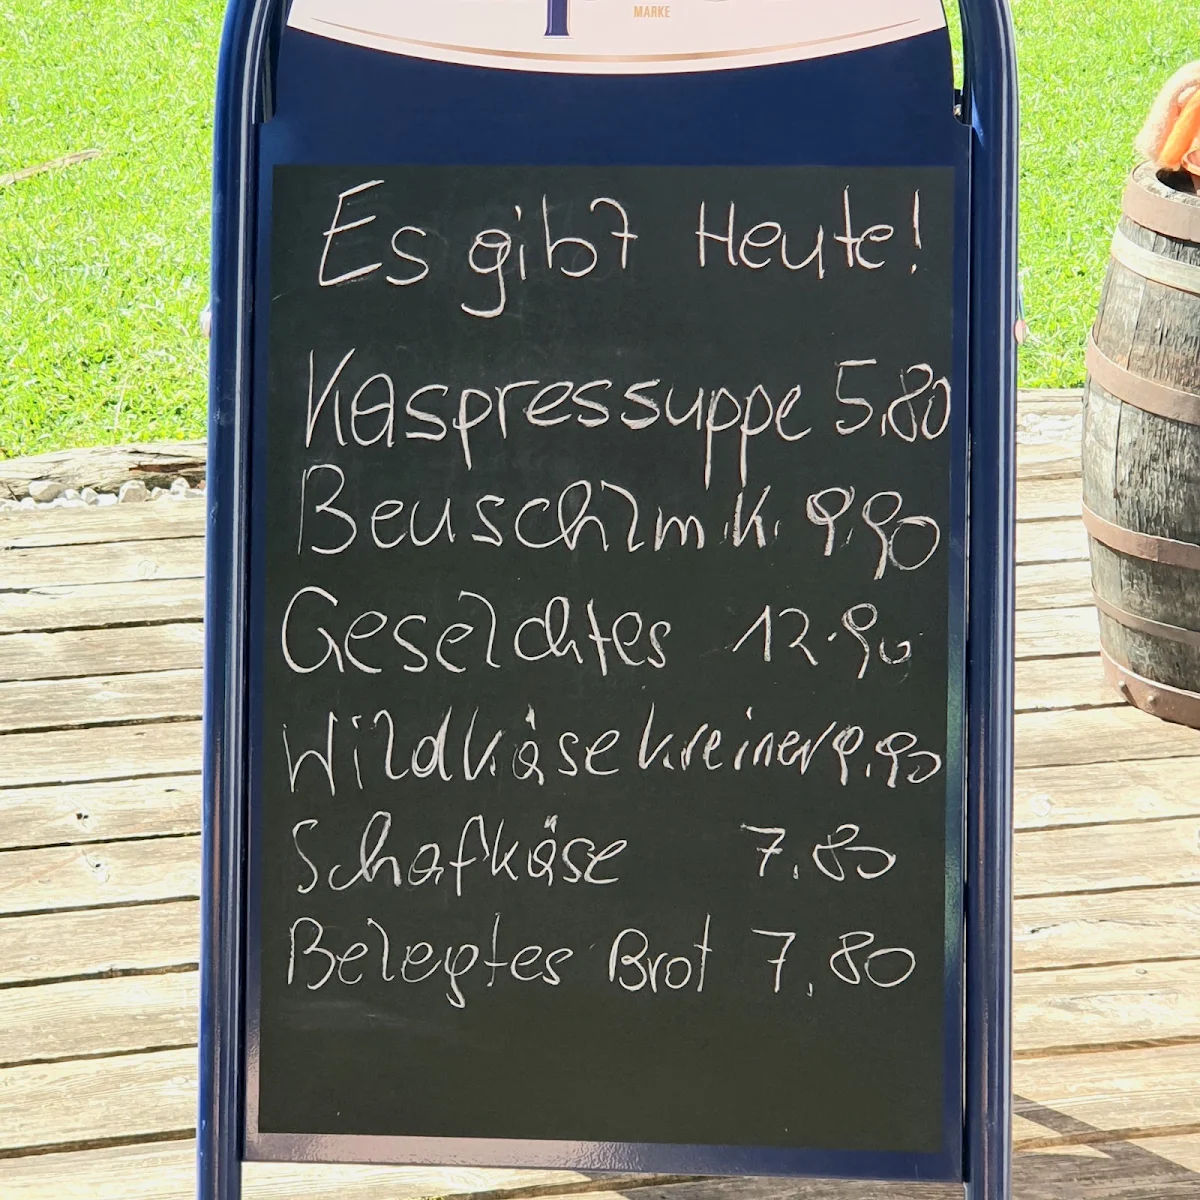 MARKE
Es gibt Heute!
Kaspressuppe 5,80
Beuschlm.K. 9,90
Geselchtes 12.90
Wildkäsekreiner 9.90
Schafkäse 7.80
Belegtes Brot 7,80